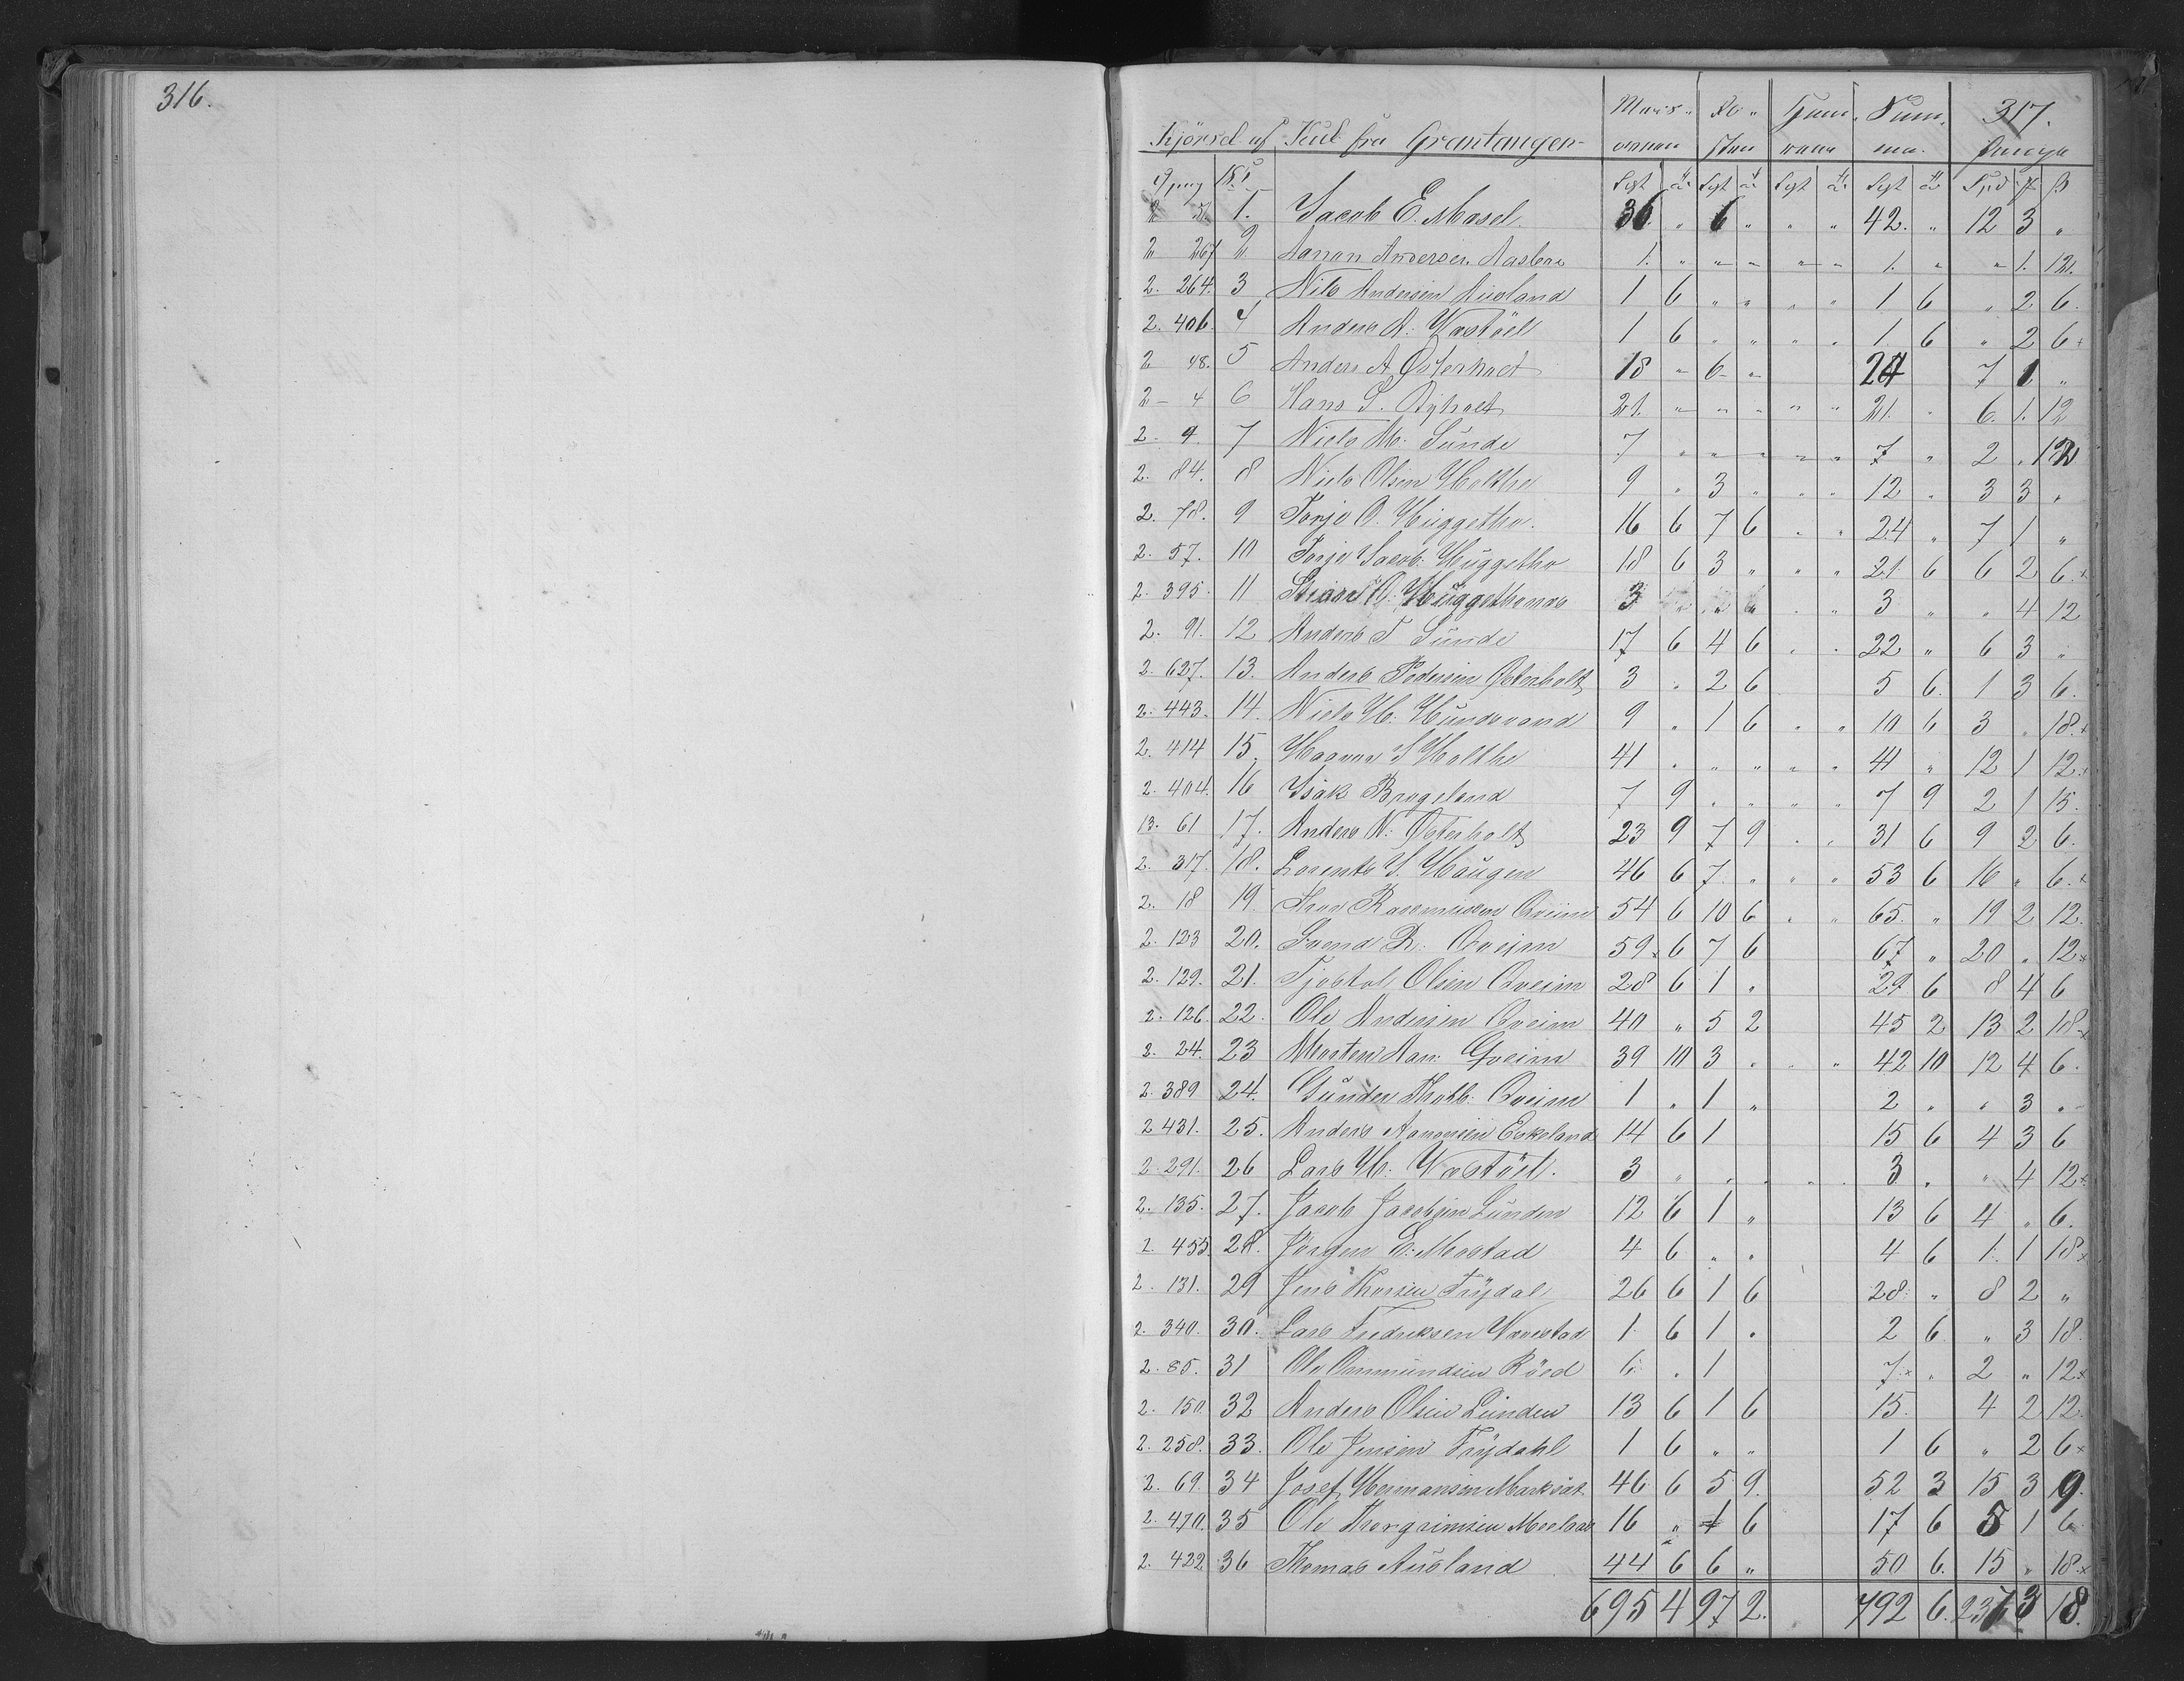 316.
317.
Kjörsel af Kul fra Grantangen
2 51. 1. Jacob E. Mosel 36. " 6 " " " 42. " 12 3 "
2 267 2 Aanon Andersen 1. " " " " " 1. " " 1. 12.
2. 264. 3 Nils Andersen Ausland 1 6 " " " " 1 6 " 2 6.
2. 406. 4 Anders A. 1 6 " " " " 1. 6 " 2 6
2 48. 5 Anders A Østerholt 18 " 6 " 24 7 1 "
2 - 4 6 Hans S. 21. " " " " " 21. " 6. 1. 12
2. 9. 7 Niels M. Sunde 7 " " " " " 7 " 2 " 12
2. 84. 8 Niels Olsen Holthe 9 " 3 " " " 12 " 3 3 "
2. 78. 9 Torje O. Huggetho. 16 6 7 6 " " 24 " 7 1 "
2. 57. 10 Torje Jacob. Huggetho 18 6 3 " " " 21. 6 6 2 6.
2. 395. 11 3 3 " " 4 12
2. 91. 12 Anders T Sunde 17 6 4 6 " " 22 " 6 3 "
2. 627. 13. Anders Pedersen Østerholt 3 " 2 6 5 6. 1 3 6.
2. 443. 14. Niels H. Hundevand 9 " 1 6 " " 10 6 3 " 18.
2. 414 15. S Holthe 41 " " " " " 41 " 12 1 12
2. 404. 16 Isak Brageland 7 9 " " " " 7 9 2 1 15.
13. 61 17. Anders N. Østerholt 23 9 7 9 " " 31 6 9 2 6.
2. 317. 18. Lorents S. Haugen 46 6 7. " " " 53 6 16 " 6.
2. 18 19. Rasmussen Qveim 54 6 10 6 " " 65. " 19 2 12.
2. 123 20. Svend R. Qveim 59 6 7 6 67 " 20 " 12
2. 129. 21. Tjøstol Olsen Qveim 28 6 1 " 29 6 8 4 6
2. 126. 22. Ole Andersen Qveim 40 " 5 2 45 2 13 2 18
2. 24. 23 Morten Aan: Qveim 39 10 3 " " " 42 10 12 4 6.
2. 389 24. Gunder Qveim 1 " 1 " 2 " " 3 "
2 431. 25. Anders Aanonsen Eskeland 14 6 1 15 6 4 3 6
2. 291. 26 Lars H. 3 " " " " " 3. " " 4 12
2. 135. 27. Jacob Jacobsen Lunden 12 6 1 " 13 6 4 " 6.
2. 455. 28. Jörgen E. Mostad 4 6 " " 4 6 1. 1 18
2. 131. 29 Jens Thorsen Trydal 26 6 1 6 28. " 8 2 "
2. 340. 30. Lars Fredriksen 1. 6 1 " 2 6 " 3 18.
2. 85. 31 Ole Ommundsen Röed 6. " 1 7. " 2 " 12
2. 150. 32 Anders Olsen Lunden 13 6 1 6 15. 4 2 12.
2. 258. 33. Ole Jensen Trydahl 1 6 " " 1 6 " 2 6
2. 69. 34 Josef Hermansen 46 6 5 9. 52 3 15 3 9.
2. 470. 35 Ole Thorgrimsen 16 " 1 6 17 6 5 1 6
2. 422 36 Thomas Ausland 44 6 6 " 50 6. 15 " 18
695 4 97 2. 792 6. 237 3 18.